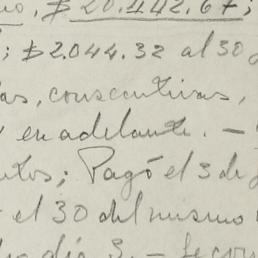 no, $ 20.442.67;
; $ 2.044.32 al 30 d
as, consecutivas,
y en adelante. —
tos; Pagó el 3 de
el 30 del mismo
dia 3. — Se con